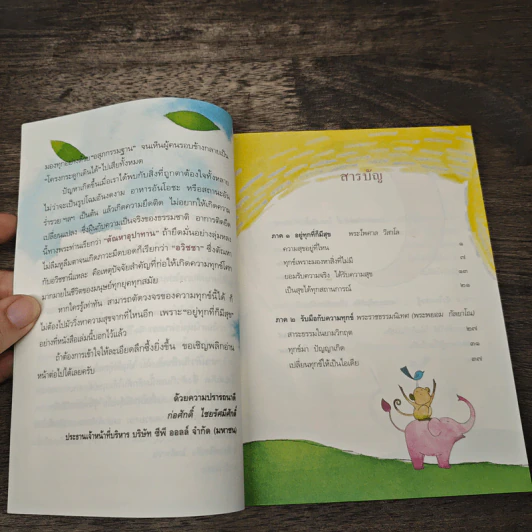 มองทุกอย่างด้วย"อสุภกรรมฐาน" จนเห็นผู้คนรอบข้างกลายเป็น
"โครงกระดูกเดินได้"ไปเสียทั้งหมด
ปัญหาเกิดขึ้นเมื่อเราได้พบกับสิ่งที่ถูกตาต้องใจทั้งหลาย
ไม่ว่าจะเป็นรูปโฉมอันงดงาม อาหารอันโอชะ หรือสถานะอัน
ร่ำรวย ฯลฯ เป็นต้น แล้วเกิดความยึดติด ไม่อยากให้เกิดความ
เปลี่ยนแปลง ซึ่งฝืนกับความเป็นจริงของธรรมชาติ อาการติดยึด
นี้ทางพระท่านเรียกว่า "ตัณหาอุปาทาน" ถ้ายึดมั่นอย่างลุ่มหลง
ไม่ลืมหูลืมตาจนเกิดภาวะมืดบอดก็เรียกว่า "อวิชชา" ซึ่งตัณหา
กับอวิชชานี่แหละ คือเหตุปัจจัยสำคัญที่ก่อให้เกิดความทุกข์โศก
มากมายในชีวิตของมนุษย์ทุกยุคทุกสมัย
หากใครรู้เท่าทัน สามารถตัดวงจรของความทุกข์นี้ได้ ก็
ไม่ต้องไปวิ่งหาความสุขจากที่ไหนอีก เพราะ"อยู่ทุกที่ก็มีสุข"
อย่างที่หนังสือเล่มนี้บอกไว้แล้ว
ถ้าต้องการเข้าใจให้ละเอียดลึกซึ้งยิ่งขึ้น ขอเชิญพลิกอ่าน
หน้าต่อไปได้เลยครับ
ด้วยความปรารถนาดี
ก่อศักดิ์ ไชยรัศมีศักดิ์
ประธานเจ้าหน้าที่บริหาร บริษัท ซีพี ออลล์ จำกัด (มหาชน)
สารบัญ
ภาค ๑ อยู่ทุกที่ก็มีสุข พระไพศาล วิสาโล
ความสุขอยู่ที่ไหน ๑
ทุกข์เพราะมองหาสิ่งที่ไม่มี ๗
ยอมรับความจริง ได้รับความสุข ๑๗
เป็นสุขได้ทุกสถานการณ์ ๒๑
ภาค ๒ รับมือกับความทุกข์ พระราชธรรมนิเทศ (พระพยอม กัลยาโณ)
สาระธรรมในยามวิกฤต ๒๗
ทุกข์มา ปัญญาเกิด ๓๑
เปลี่ยนทุกข์ให้เป็นไอเดีย ๓๗